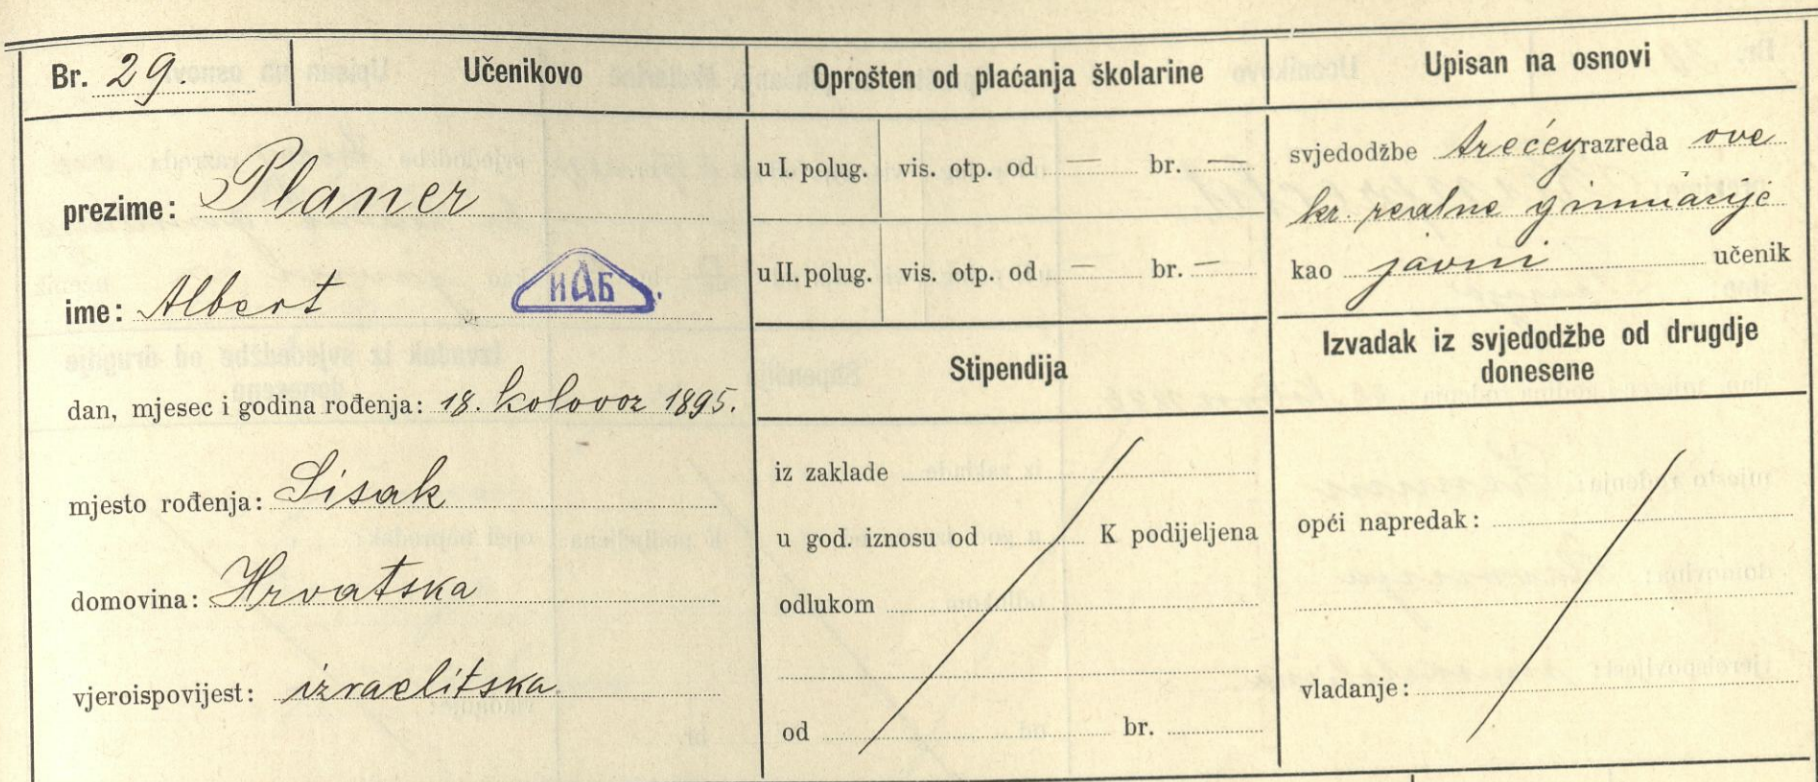 Br. 29.
Učenikovo
prezime: Planer
ime: Albert
НАБ
dan, mjesec i godina rođenja: 18. kolovoz 1895.
mjesto rođenja: Sisak
domovina: Hrvatska
vjeroispovijest: izraelitska.
Oprošten od plaćanja školarine
u I. polug. vis. otp. od — br. —
u II. polug. vis. otp. od — br. —
Stipendija
iz zaklade
u god. iznosu od K podijeljena
odlukom
od br.
Upisan na osnovi
svjedodžbe trećeg razreda ove
kr. realne gimnazije
kao javni učenik
Izvadak iz svjedodžbe od drugdje
donesene
opći napredak:
vladanje: